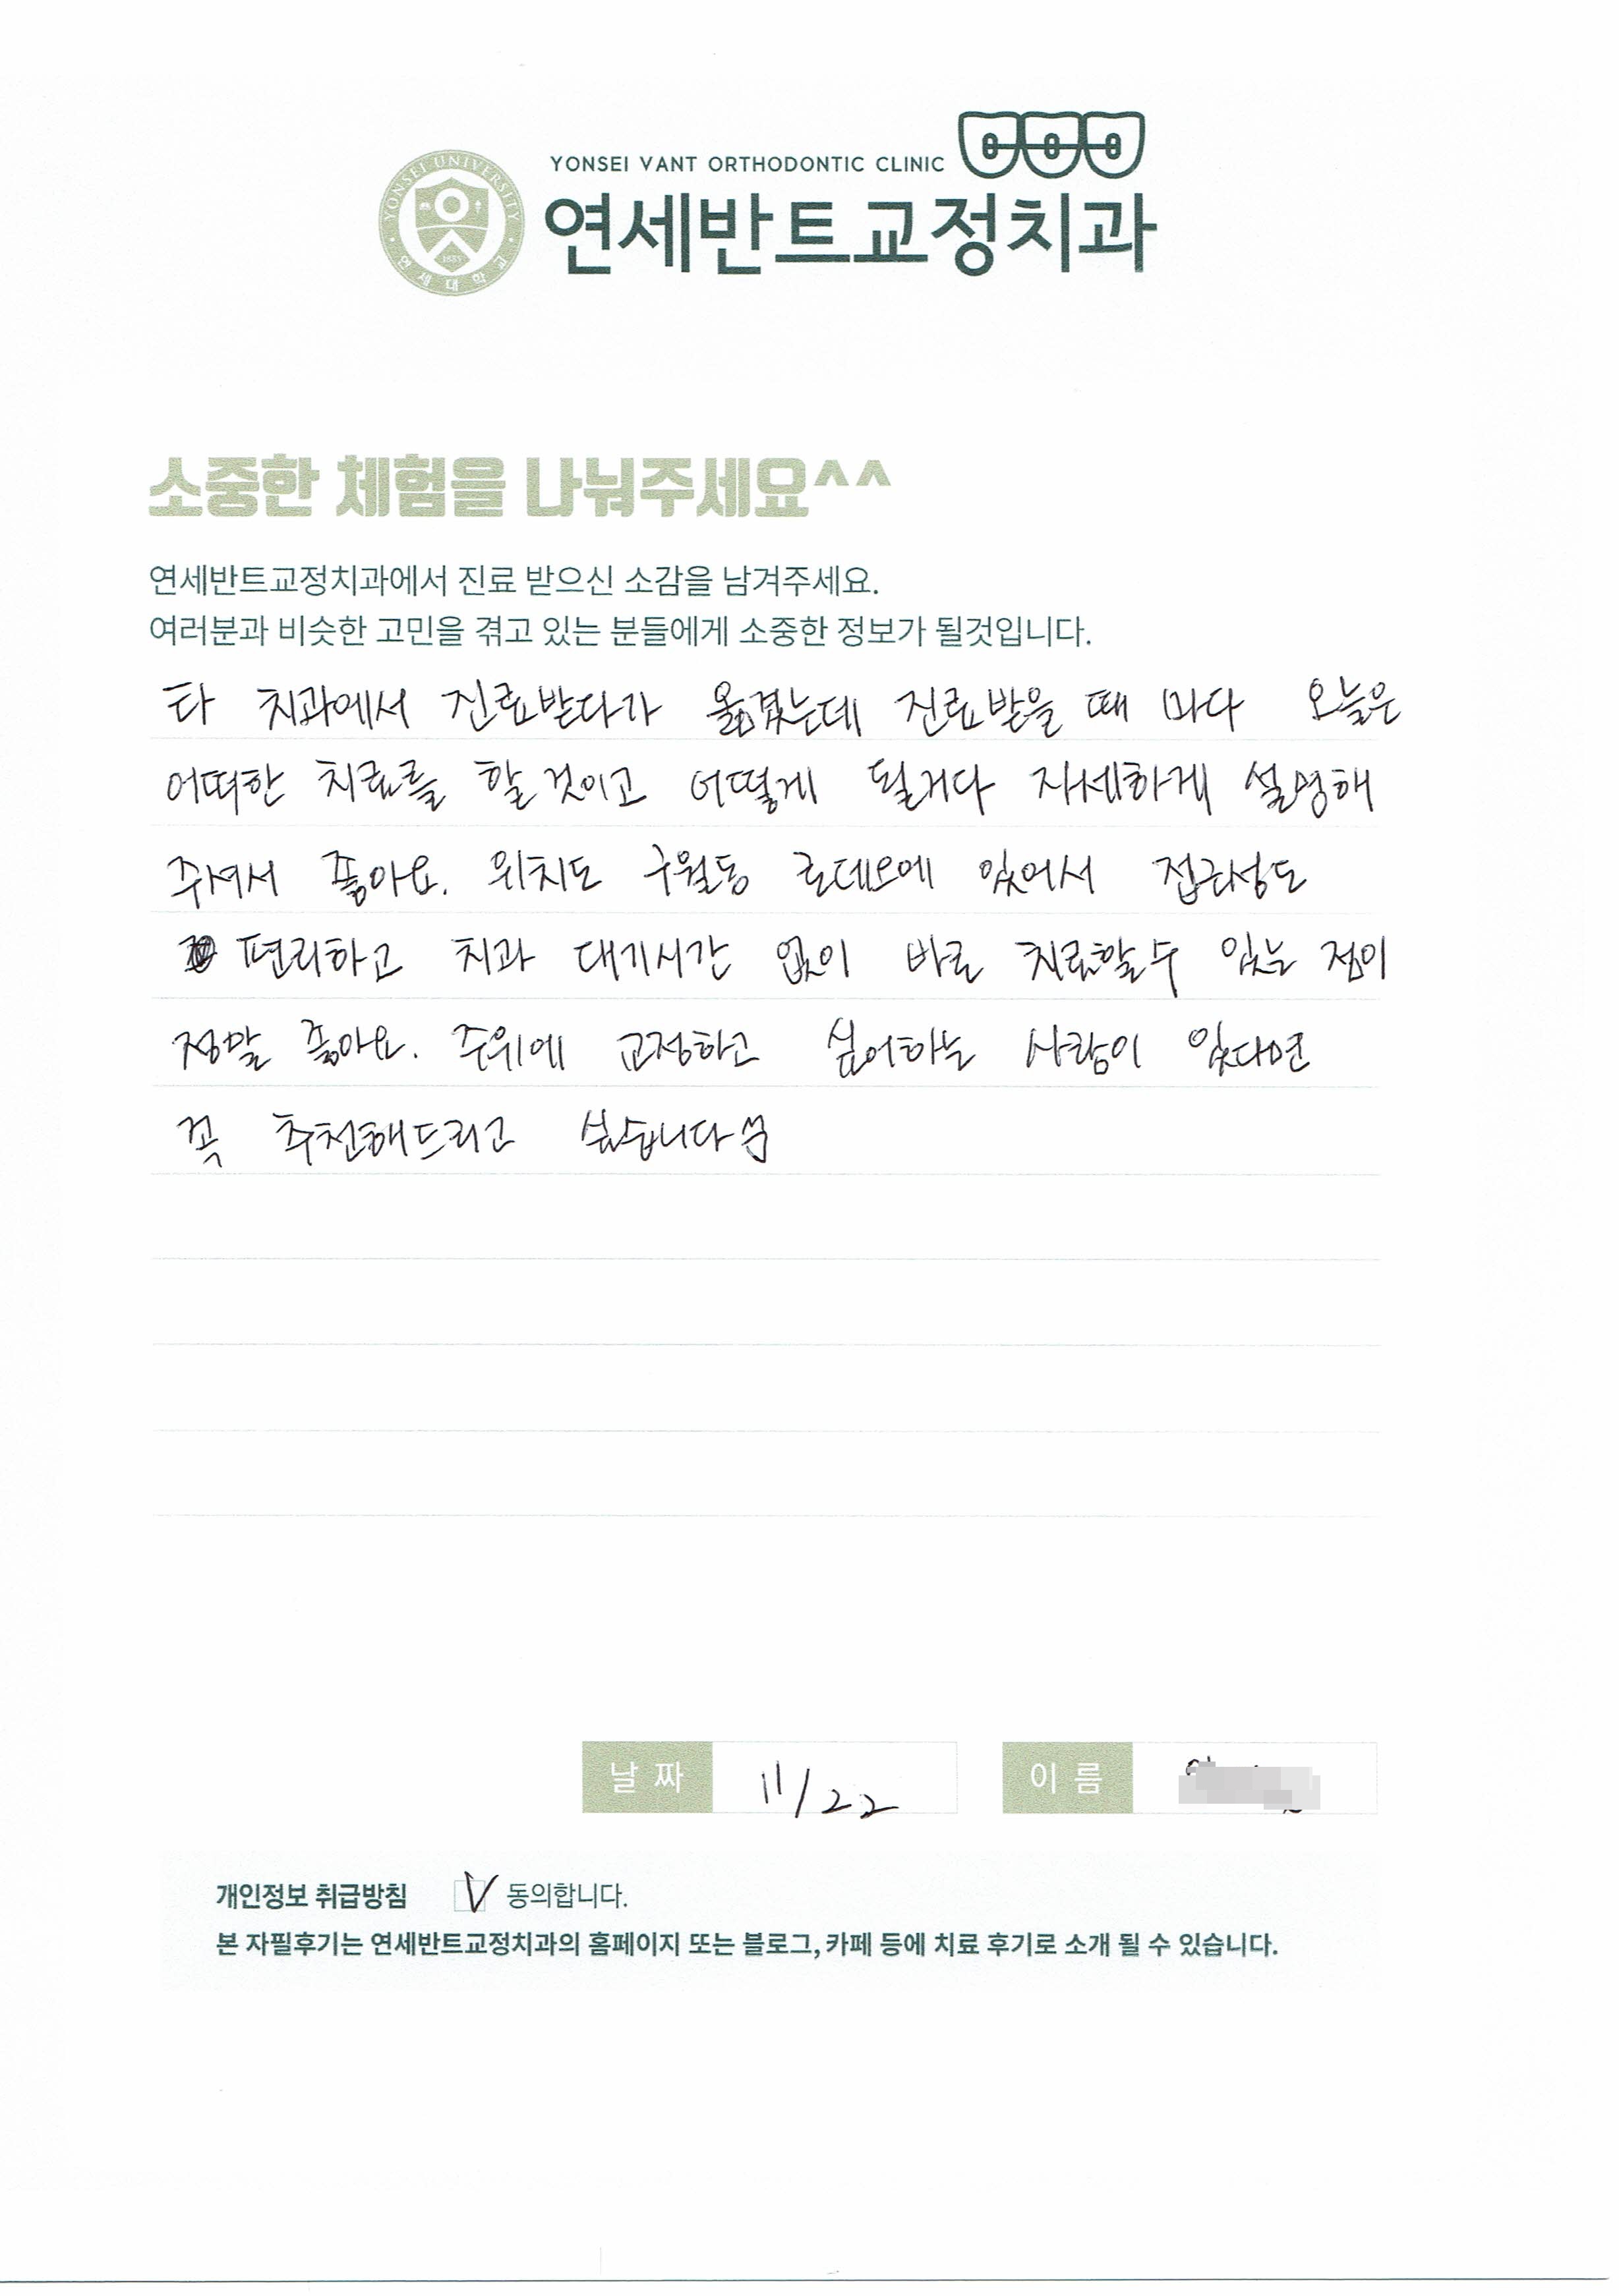 YONSEI VANT ORTHODONTIC CLINIC
연세반트교정치과
YONSEI UNIVERSITY
1885
연세대학교
소중한 체험을 나눠주세요^^
연세반트교정치과에서 진료 받으신 소감을 남겨주세요.
여러분과 비슷한 고민을 겪고 있는 분들에게 소중한 정보가 될것입니다.
타 치과에서 진료받다가 옮겼는데 진료받을 때 마다 오늘은
어떠한 치료를 할 것이고 어떻게 될거다 자세하게 설명해
주셔서 좋아요. 위치도 구월동 로데오에 있어서 접근성도
편리하고 치과 대기시간 없이 바로 치료할수 있는 점이
정말 좋아요. 주위에 교정하고 싶어하는 사람이 있다면
꼭 추천해드리고 싶습니다
날짜 11/22 이름
개인정보 취급방침 V 동의합니다.
본 자필후기는 연세반트교정치과의 홈페이지 또는 블로그, 카페 등에 치료 후기로 소개 될 수 있습니다.